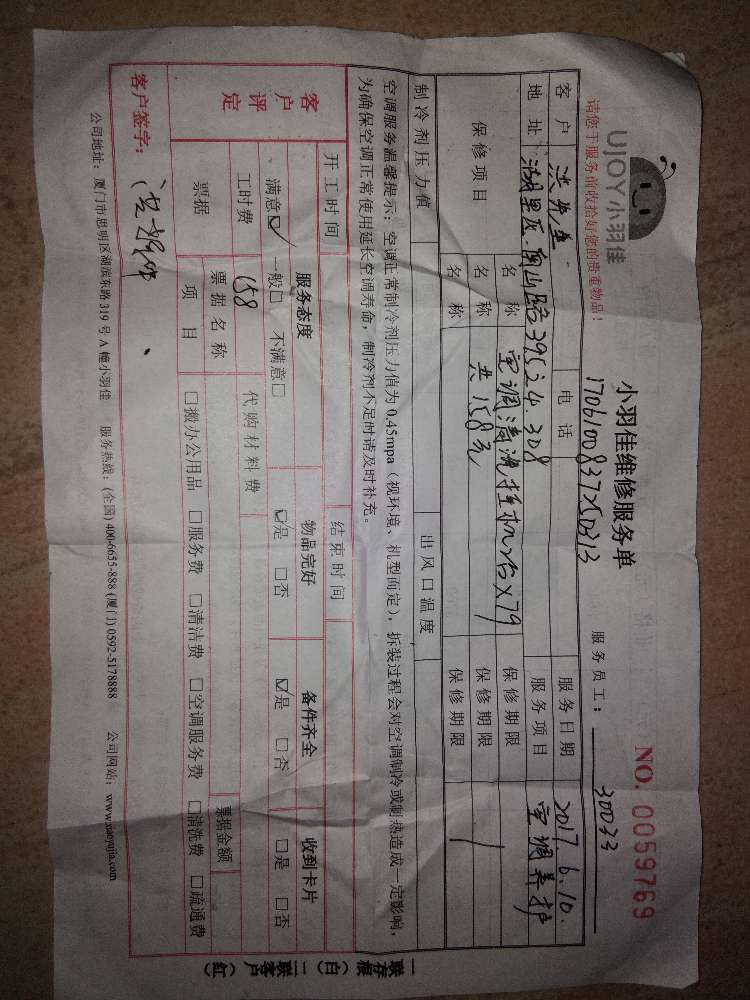 UJOY 小羽佳
小羽佳维修服务单
NO. 0059769
请您于服务前收拾好您的贵重物品!
170610083725D313
服务员工: 30033
客户 洪先生 电话 服务日期 2017.6.10.
地址 湖里区.南山路395之4.308 服务项目 空调养护
保修项目
名称 空调清洗挂机2台X79 保修期限
名称 共158元 保修期限
名称 保修期限
制冷剂压力值 出风口温度
空调服务温馨提示:空调正常制冷剂压力值为0.45mpa(视环境、机型而定),拆装过程会对空调制冷或制热造成一定影响,
为确保空调正常使用延长空调寿命,制冷剂不足时请及时补充。
开工时间 结束时间
客户评定
服务态度 物品完好 备件齐全 收到卡片
满意☑ 一般□ 不满意□ ☑是 □否 ☑是 □否 □是 □否
工时费 158 代购材料费
票据 票据名称 票据金额
项目 □搬办公用品 □服务费 □清洁费 □空调服务费 □清洗费 □疏通费
客户签字:
公司地址:厦门市思明区湖滨东路319号A幢小羽佳 服务热线:(全国)400-6655-888 (厦门)0592-5178888 公司网站:www.xiaoyujia.com
一联存根(白)二联客户(红)